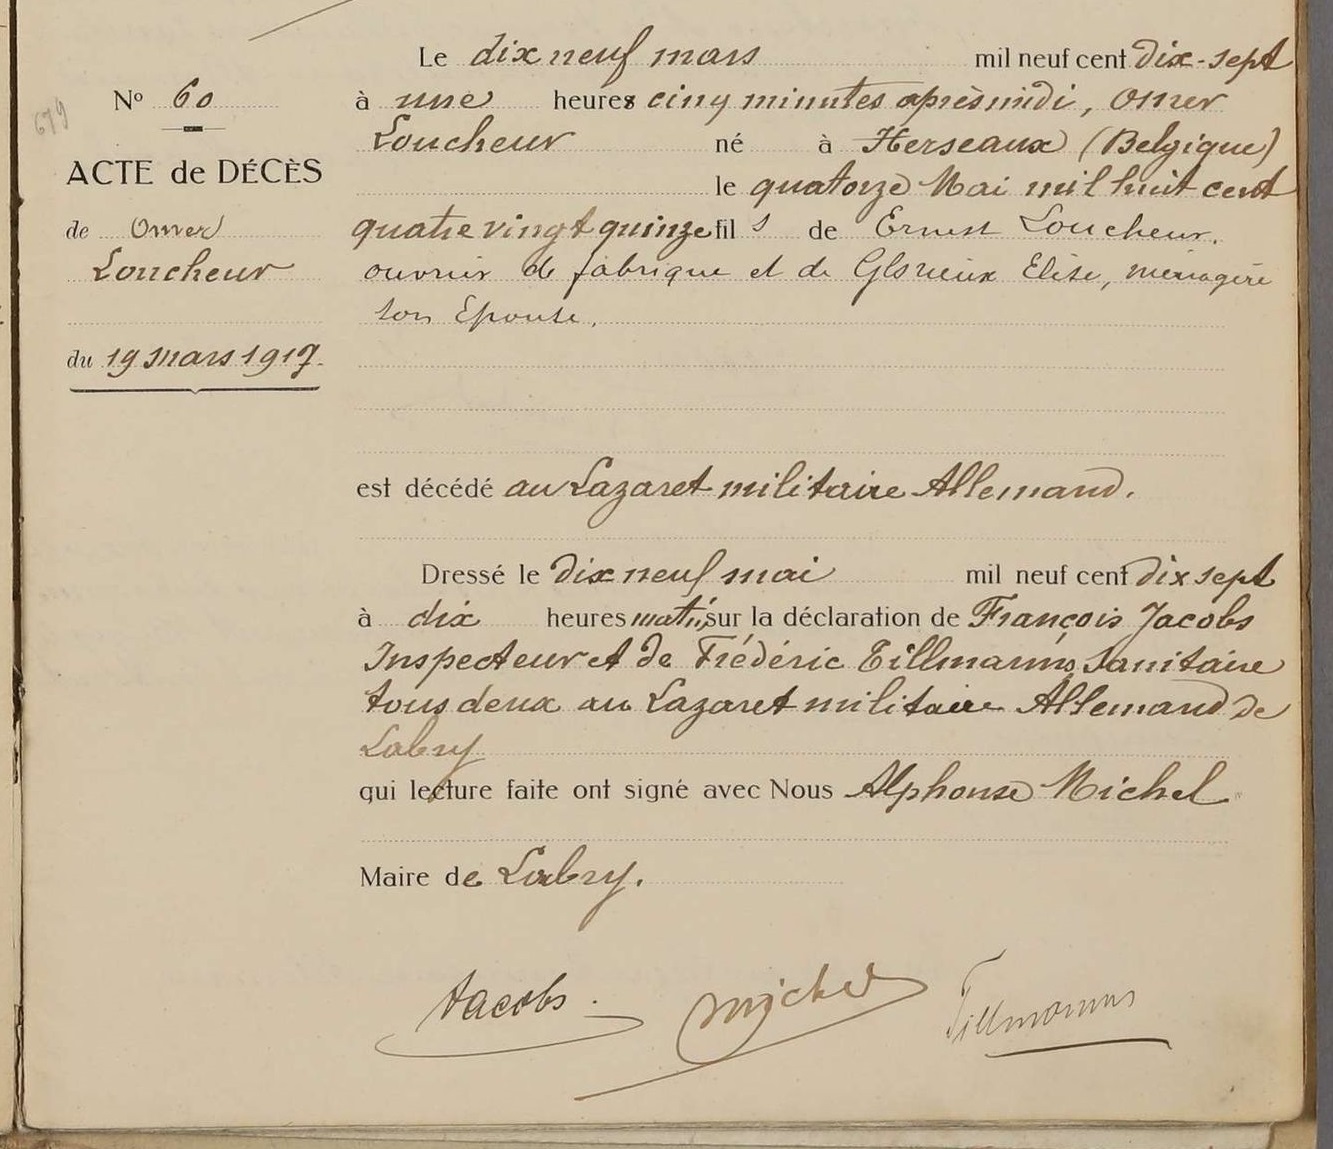 679
Nº 60
ACTE de DÉCÈS
de Omer
Loucheur
du 19 Mars 1917.
Le dix neuf mars mil neuf cent dix-sept
à une heures cinq minutes après midi, Omer
Loucheur né à Herseaux (Belgique)
le quatorze Mai mil huit cent
quatre vingt quinze fils de Ernest Loucheur,
ouvrier de fabrique et de Glorieux Elise, ménagère
son Epouse.
est décédé au Lazaret militaire Allemand.
Dressé le dix neuf mai mil neuf cent dix sept
à dix heures matin, sur la déclaration de François Jacobs
Inspecteur et de Frédéric Tillmanns Sanitaire
tous deux au Lazaret militaire Allemand de
Labry
qui lecture faite ont signé avec Nous Alphonse Michel
Maire de Labry.
Jacobs. Michel Tillmanns